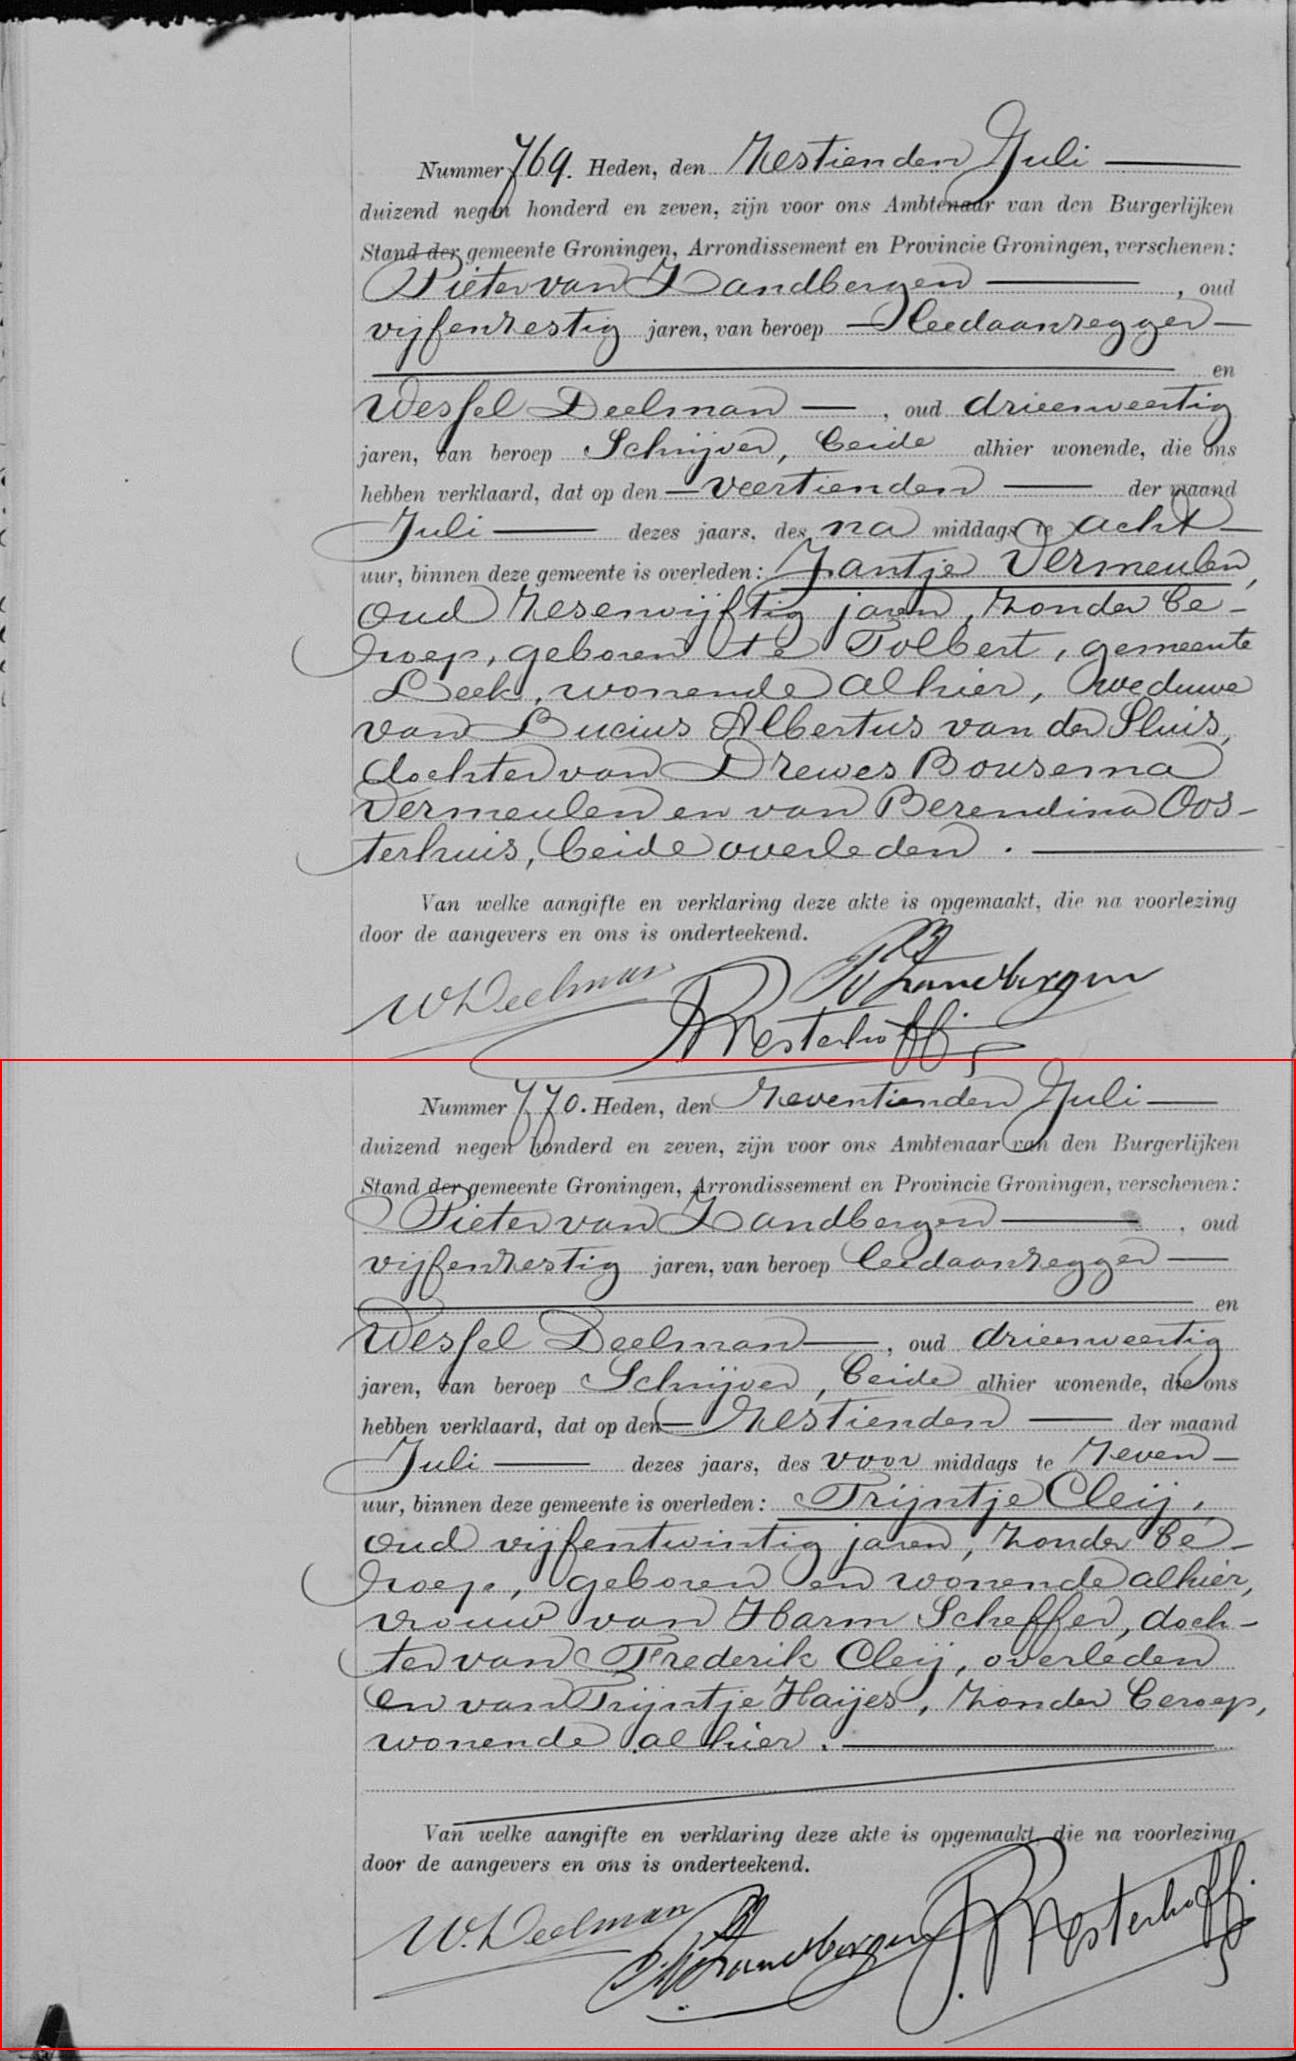 Nummer 769. Heden, den Zestienden Juli
duizend negen honderd en zeven, zijn voor ons Ambtenaar van den Burgerlijken
Stand der gemeente Groningen, Arrondissement en Provincie Groningen, verschenen:
Pieter van Zandbergen, oud
vijfenzestig jaren, van beroep Leedaanzegger
en
Wessel Deelman, oud drieenveertig
jaren, van beroep Schrijver, beide alhier wonende, die ons
hebben verklaard, dat op den veertienden der maand
Juli dezes jaars, des na middags te acht
uur, binnen deze gemeente is overleden: Jantje Vermeulen,
oud zesenvijftig jaren, zonder be-
roep, geboren te Tolbert, gemeente
Leek, wonende alhier, weduwe
van Lucius Albertus van der Sluis,
dochter van Drewes Bousema
Vermeulen en van Berendina Oos-
terhuis, beide overleden.
Van welke aangifte en verklaring deze akte is opgemaakt, die na voorlezing
door de aangevers en ons is onderteekend.
W Deelman PvZandbergen
Westerhoff
Nummer 770. Heden, den Zeventienden Juli
duizend negen honderd en zeven, zijn voor ons Ambtenaar van den Burgerlijken
Stand der gemeente Groningen, Arrondissement en Provincie Groningen, verschenen:
Pieter van Zandbergen, oud
vijfenzestig jaren, van beroep leedaanzegger
en
Wessel Deelman, oud drieenveertig
jaren, van beroep Schrijver, beide alhier wonende, die ons
hebben verklaard, dat op den Zestienden der maand
Juli dezes jaars, des voor middags te Zeven
uur, binnen deze gemeente is overleden: Trijntje Cleij,
oud vijfentwintig jaren, zonder be-
roep, geboren en wonende alhier,
vrouw van Harm Scheffer, doch-
ter van Frederik Cleij, overleden
en van Trijntje Haijes, zonder beroep,
wonende alhier.
Van welke aangifte en verklaring deze akte is opgemaakt, die na voorlezing
door de aangevers en ons is onderteekend.
W. Deelman PvZandbergen Westerhoff